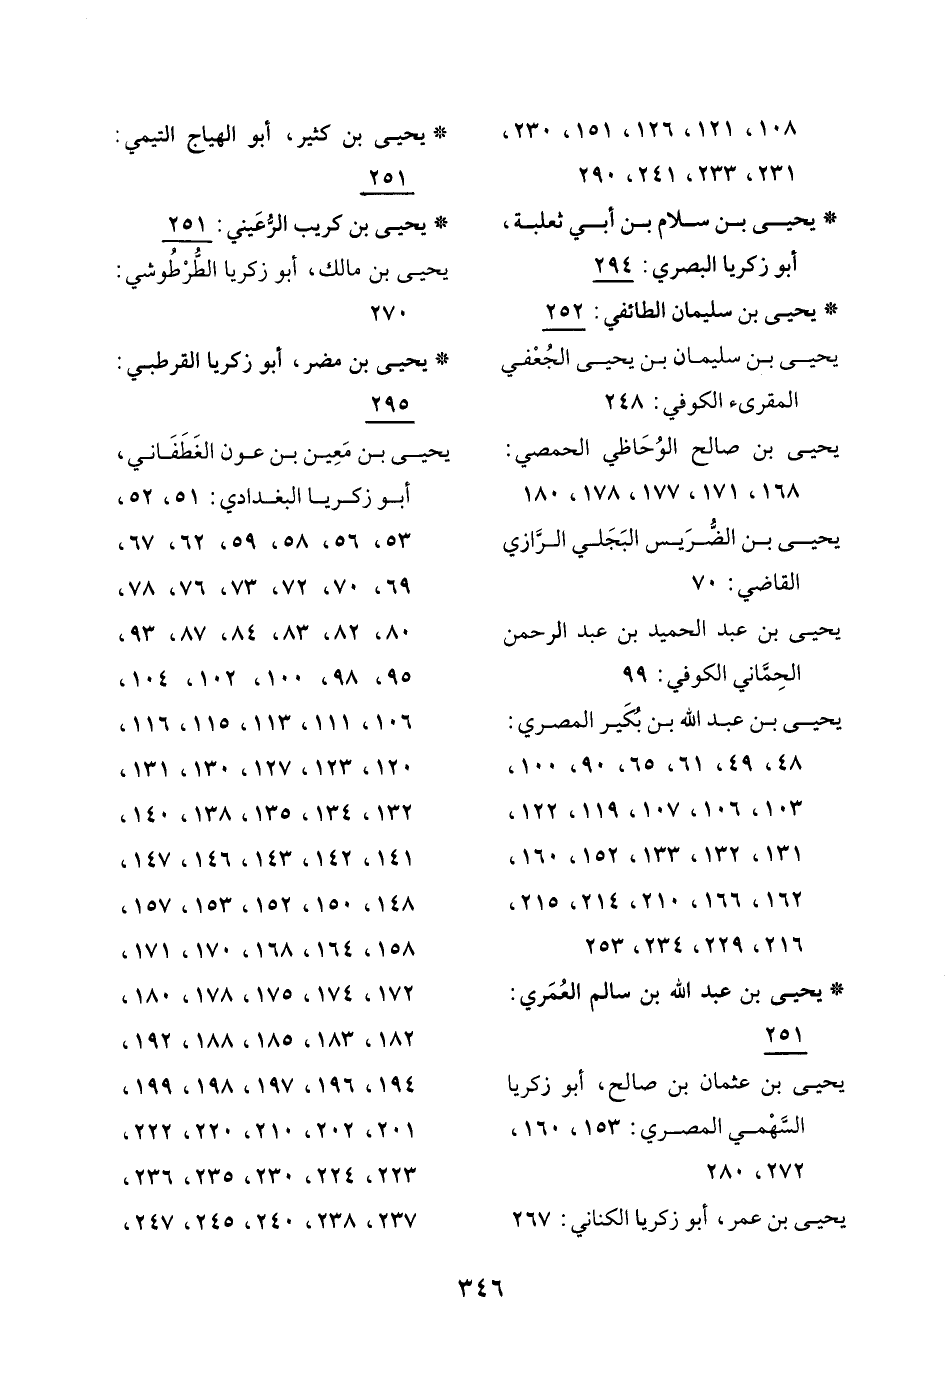 ١٠٨، ١٢١، ١٢٦، ١٥١، ٢٣٠،
٢٣١، ٢٣٣، ٢٤١، ٢٩٠
* يحيى بن سلام بن أبي ثعلبة،
أبو زكريا البصري: ٢٩٤
* يحيى بن سليمان الطائفي: ٢٥٢
يحيى بن سليمان بن يحيى الجُعْفي
المقرىء الكوفي: ٢٤٨
يحيى بن صالح الوُحَاظي الحمصي:
١٦٨، ١٧١، ١٧٧، ١٧٨، ١٨٠
يحيى بن الضُّرَيس البَجَلي الرَّازي
القاضي: ٧٠
يحيى بن عبد الحميد بن عبد الرحمن
الحِمَّاني الكوفي: ٩٩
يحيى بن عبد الله بن بُكَير المصري:
٤٨، ٤٩، ٦١، ٦٥، ٩٠، ١٠٠،
١٠٣، ١٠٦، ١٠٧، ١١٩، ١٢٢،
١٣١، ١٣٢، ١٣٣، ١٥٢، ١٦٠،
١٦٢، ١٦٦، ٢١٠، ٢١٤، ٢١٥،
٢١٦، ٢٢٩، ٢٣٤، ٢٥٣
* يحيى بن عبد الله بن سالم العُمَري:
٢٥١
يحيى بن عثمان بن صالح، أبو زكريا
السَّهْمي المصري: ١٥٣، ١٦٠،
٢٧٢، ٢٨٠
يحيى بن عمر، أبو زكريا الكناني: ٢٦٧
* يحيى بن كثير، أبو الهياج التيمي:
٢٥١
* يحيى بن كريب الرُّعَيني: ٢٥١
يحيى بن مالك، أبو زكريا الطُّرْطُوشي:
٢٧٠
* يحيى بن مضر، أبو زكريا القرطبي:
٢٩٥
يحيى بن مَعِين بن عون الغَطَفَاني،
أبو زكريا البغدادي: ٥١، ٥٢،
٥٣، ٥٦، ٥٨، ٥٩، ٦٢، ٦٧،
٦٩، ٧٠، ٧٢، ٧٣، ٧٦، ٧٨،
٨٠، ٨٢، ٨٣، ٨٤، ٨٧، ٩٣،
٩٥، ٩٨، ١٠٠، ١٠٢، ١٠٤،
١٠٦، ١١١، ١١٣، ١١٥، ١١٦،
١٢٠، ١٢٣، ١٢٧، ١٣٠، ١٣١،
١٣٢، ١٣٤، ١٣٥، ١٣٨، ١٤٠،
١٤١، ١٤٢، ١٤٣، ١٤٦، ١٤٧،
١٤٨، ١٥٠، ١٥٢، ١٥٣، ١٥٧،
١٥٨، ١٦٤، ١٦٨، ١٧٠، ١٧١،
١٧٢، ١٧٤، ١٧٥، ١٧٨، ١٨٠،
١٨٢، ١٨٣، ١٨٥، ١٨٨، ١٩٢،
١٩٤، ١٩٦، ١٩٧، ١٩٨، ١٩٩،
٢٠١، ٢٠٢، ٢١٠، ٢٢٠، ٢٢٢،
٢٢٣، ٢٢٤، ٢٣٠، ٢٣٥، ٢٣٦،
٢٣٧، ٢٣٨، ٢٤٠، ٢٤٥، ٢٤٧،
٣٤٦